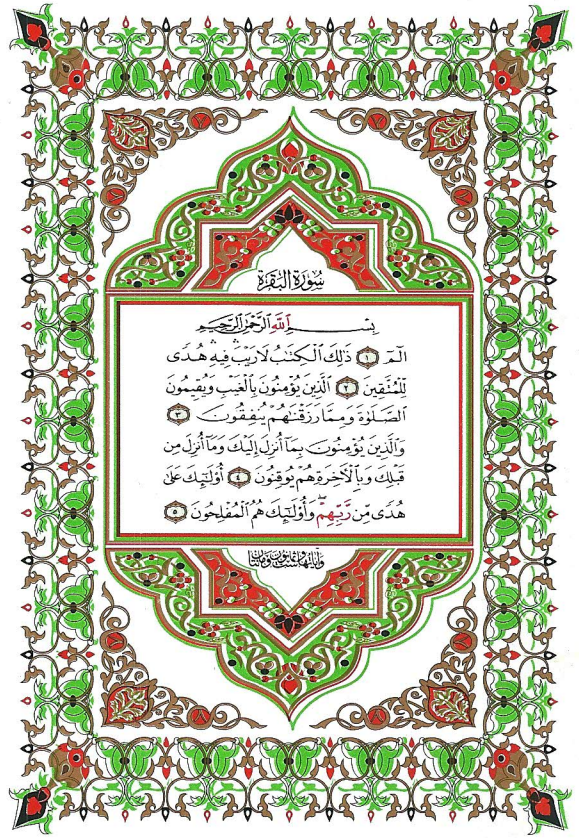 سُورَةُ البَقَرَةِ
بِسْمِ اللَّهِ الرَّحْمَٰنِ الرَّحِيمِ
الٓمٓ ١ ذَٰلِكَ الْكِتَابُ لَا رَيْبَ ۛ فِيهِ ۛ هُدًى
لِّلْمُتَّقِينَ ٢ الَّذِينَ يُؤْمِنُونَ بِالْغَيْبِ وَيُقِيمُونَ
الصَّلَوٰةَ وَمِمَّا رَزَقْنَٰهُمْ يُنفِقُونَ ٣
وَالَّذِينَ يُؤْمِنُونَ بِمَا أُنزِلَ إِلَيْكَ وَمَا أُنزِلَ مِن
قَبْلِكَ وَبِالْآخِرَةِ هُمْ يُوقِنُونَ ٤ أُوْلَٰئِكَ عَلَىٰ
هُدًى مِّن رَّبِّهِمْ ۖ وَأُوْلَٰئِكَ هُمُ الْمُفْلِحُونَ ٥
وآياتها ست وثمانون ومئتان